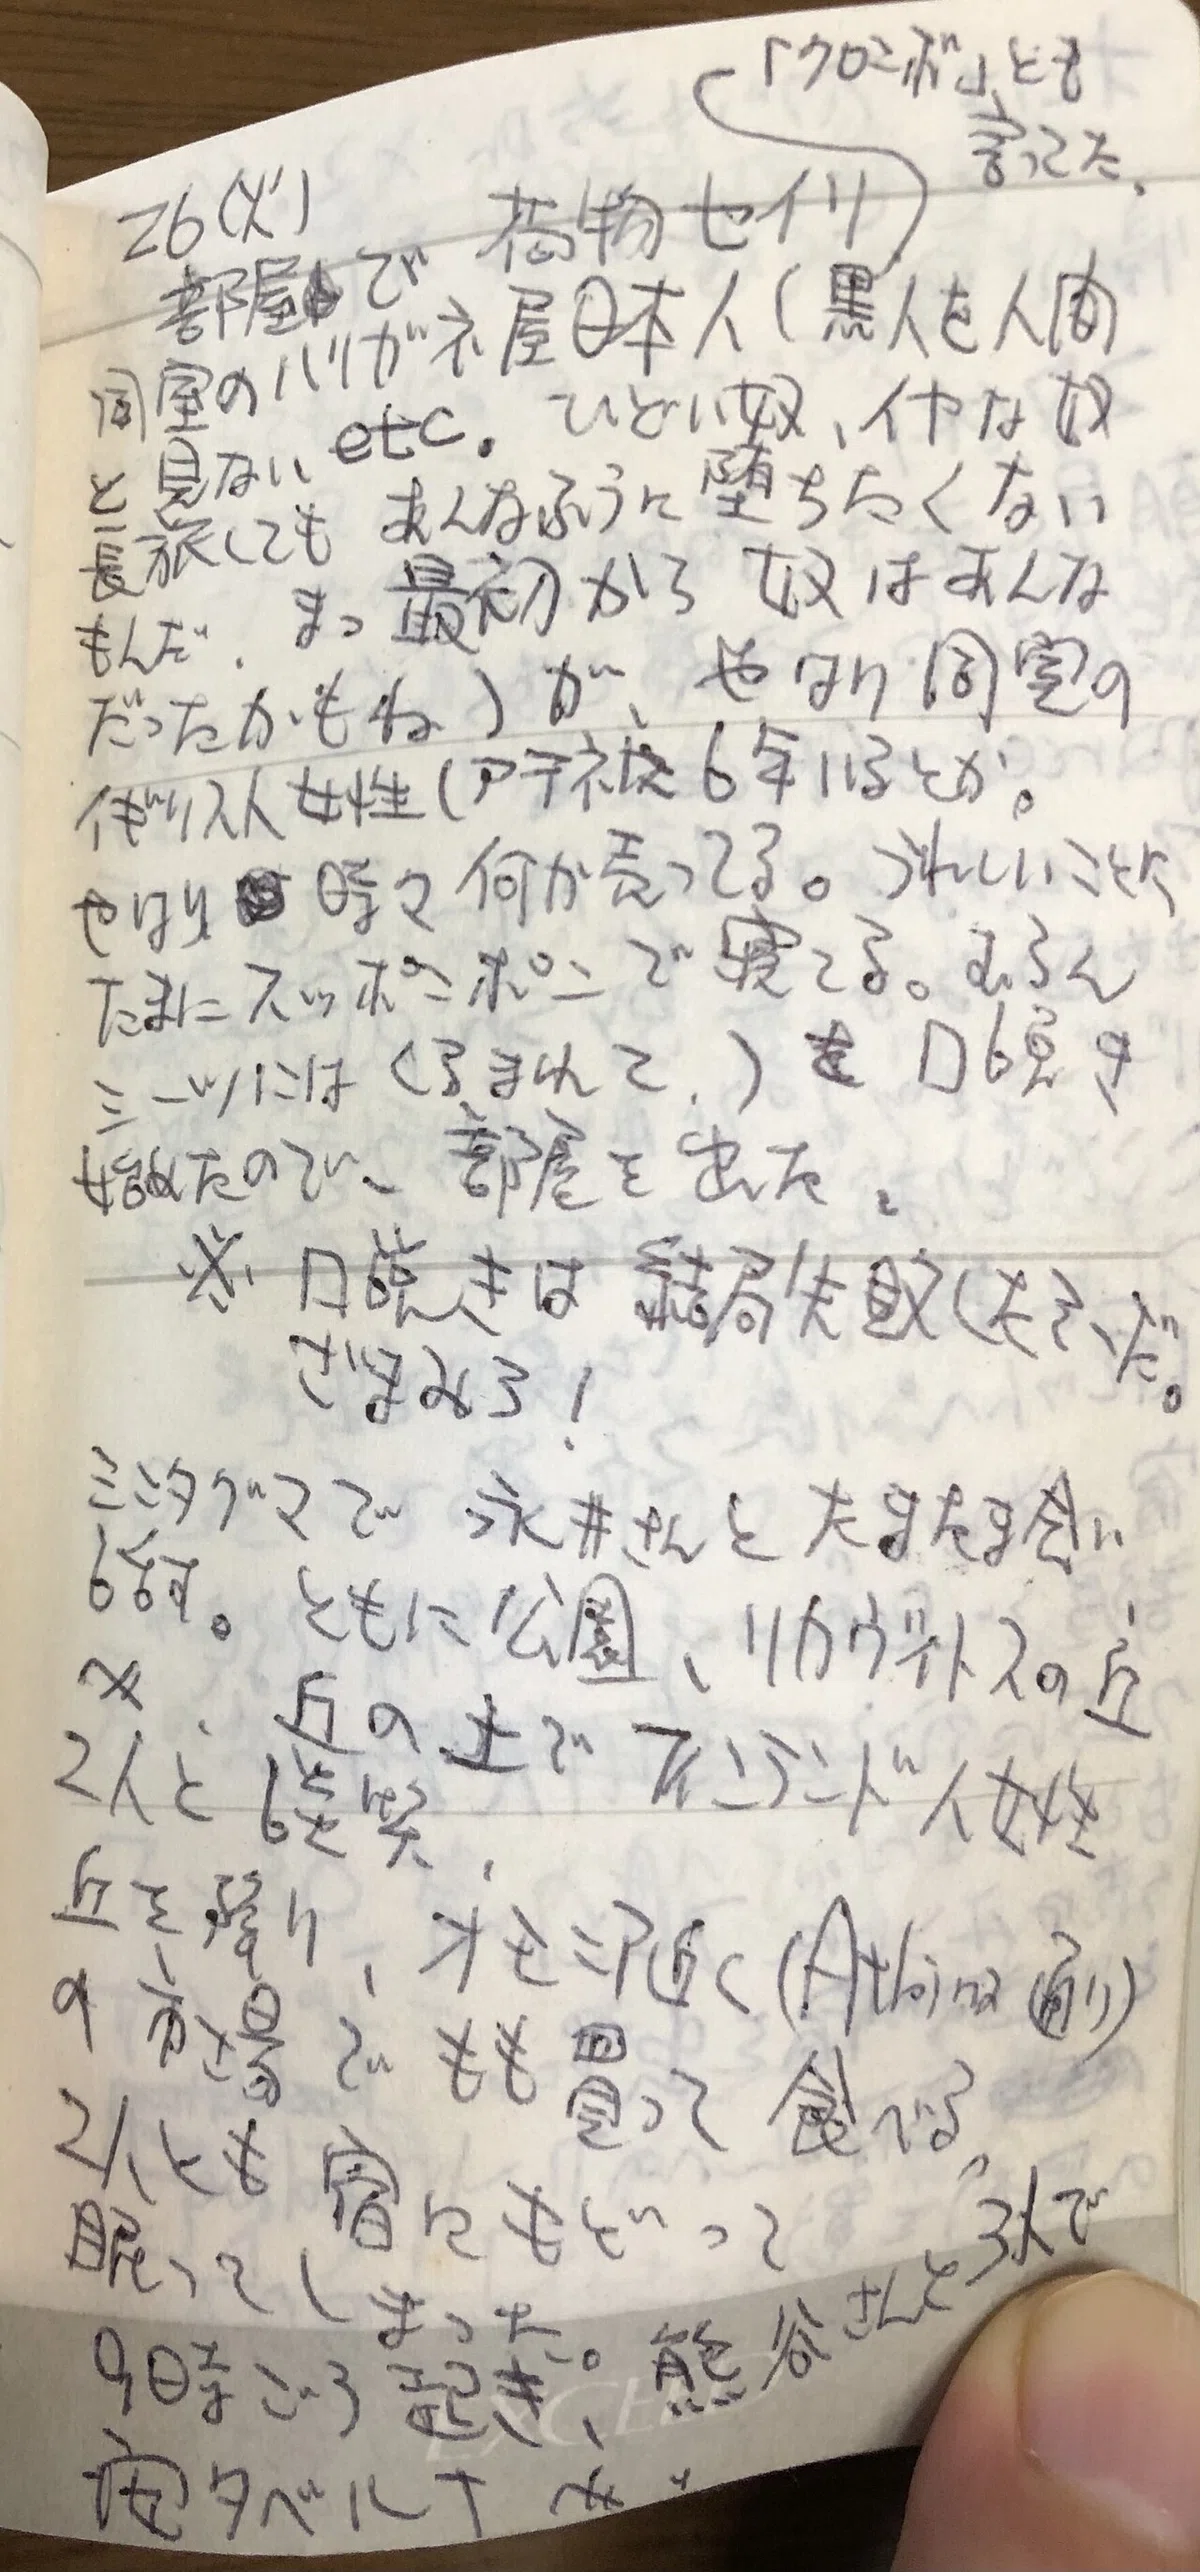 「クロンボ」とも
言ってた.
26(火)
部屋で 荷物セイリ
同室のハリガネ屋日本人(黒人を人間
と見ない etc. ひどい奴、イヤな奴
長旅しても あんなふうに堕ちたくない
もんだ. まっ最初から 奴はあんな
だったかもね)が、やはり同室の
イギリス人女性(アテネに6年いるとか。
やはり 時々何か売ってる。うれしいことに
たまにスッポンポンで寝てる。むろん
シーツにはくるまれて.)を口説き
始めたので、部屋を出た.
※ 口説きは結局失敗したそうだ。
ざまみろ!
シンタグマで 永井さんとたまたま会い
話す。ともに公園、リカヴィトスの丘
へ、丘の上でフィンランド人女性
2人と談笑.
丘を降り、オモニア近く(Athina通り)
の市場でもも買って食べる.
2人とも宿にもどって
眠ってしまった。
9時ごろ起き、熊谷さんと3人で
安タベルナへ.